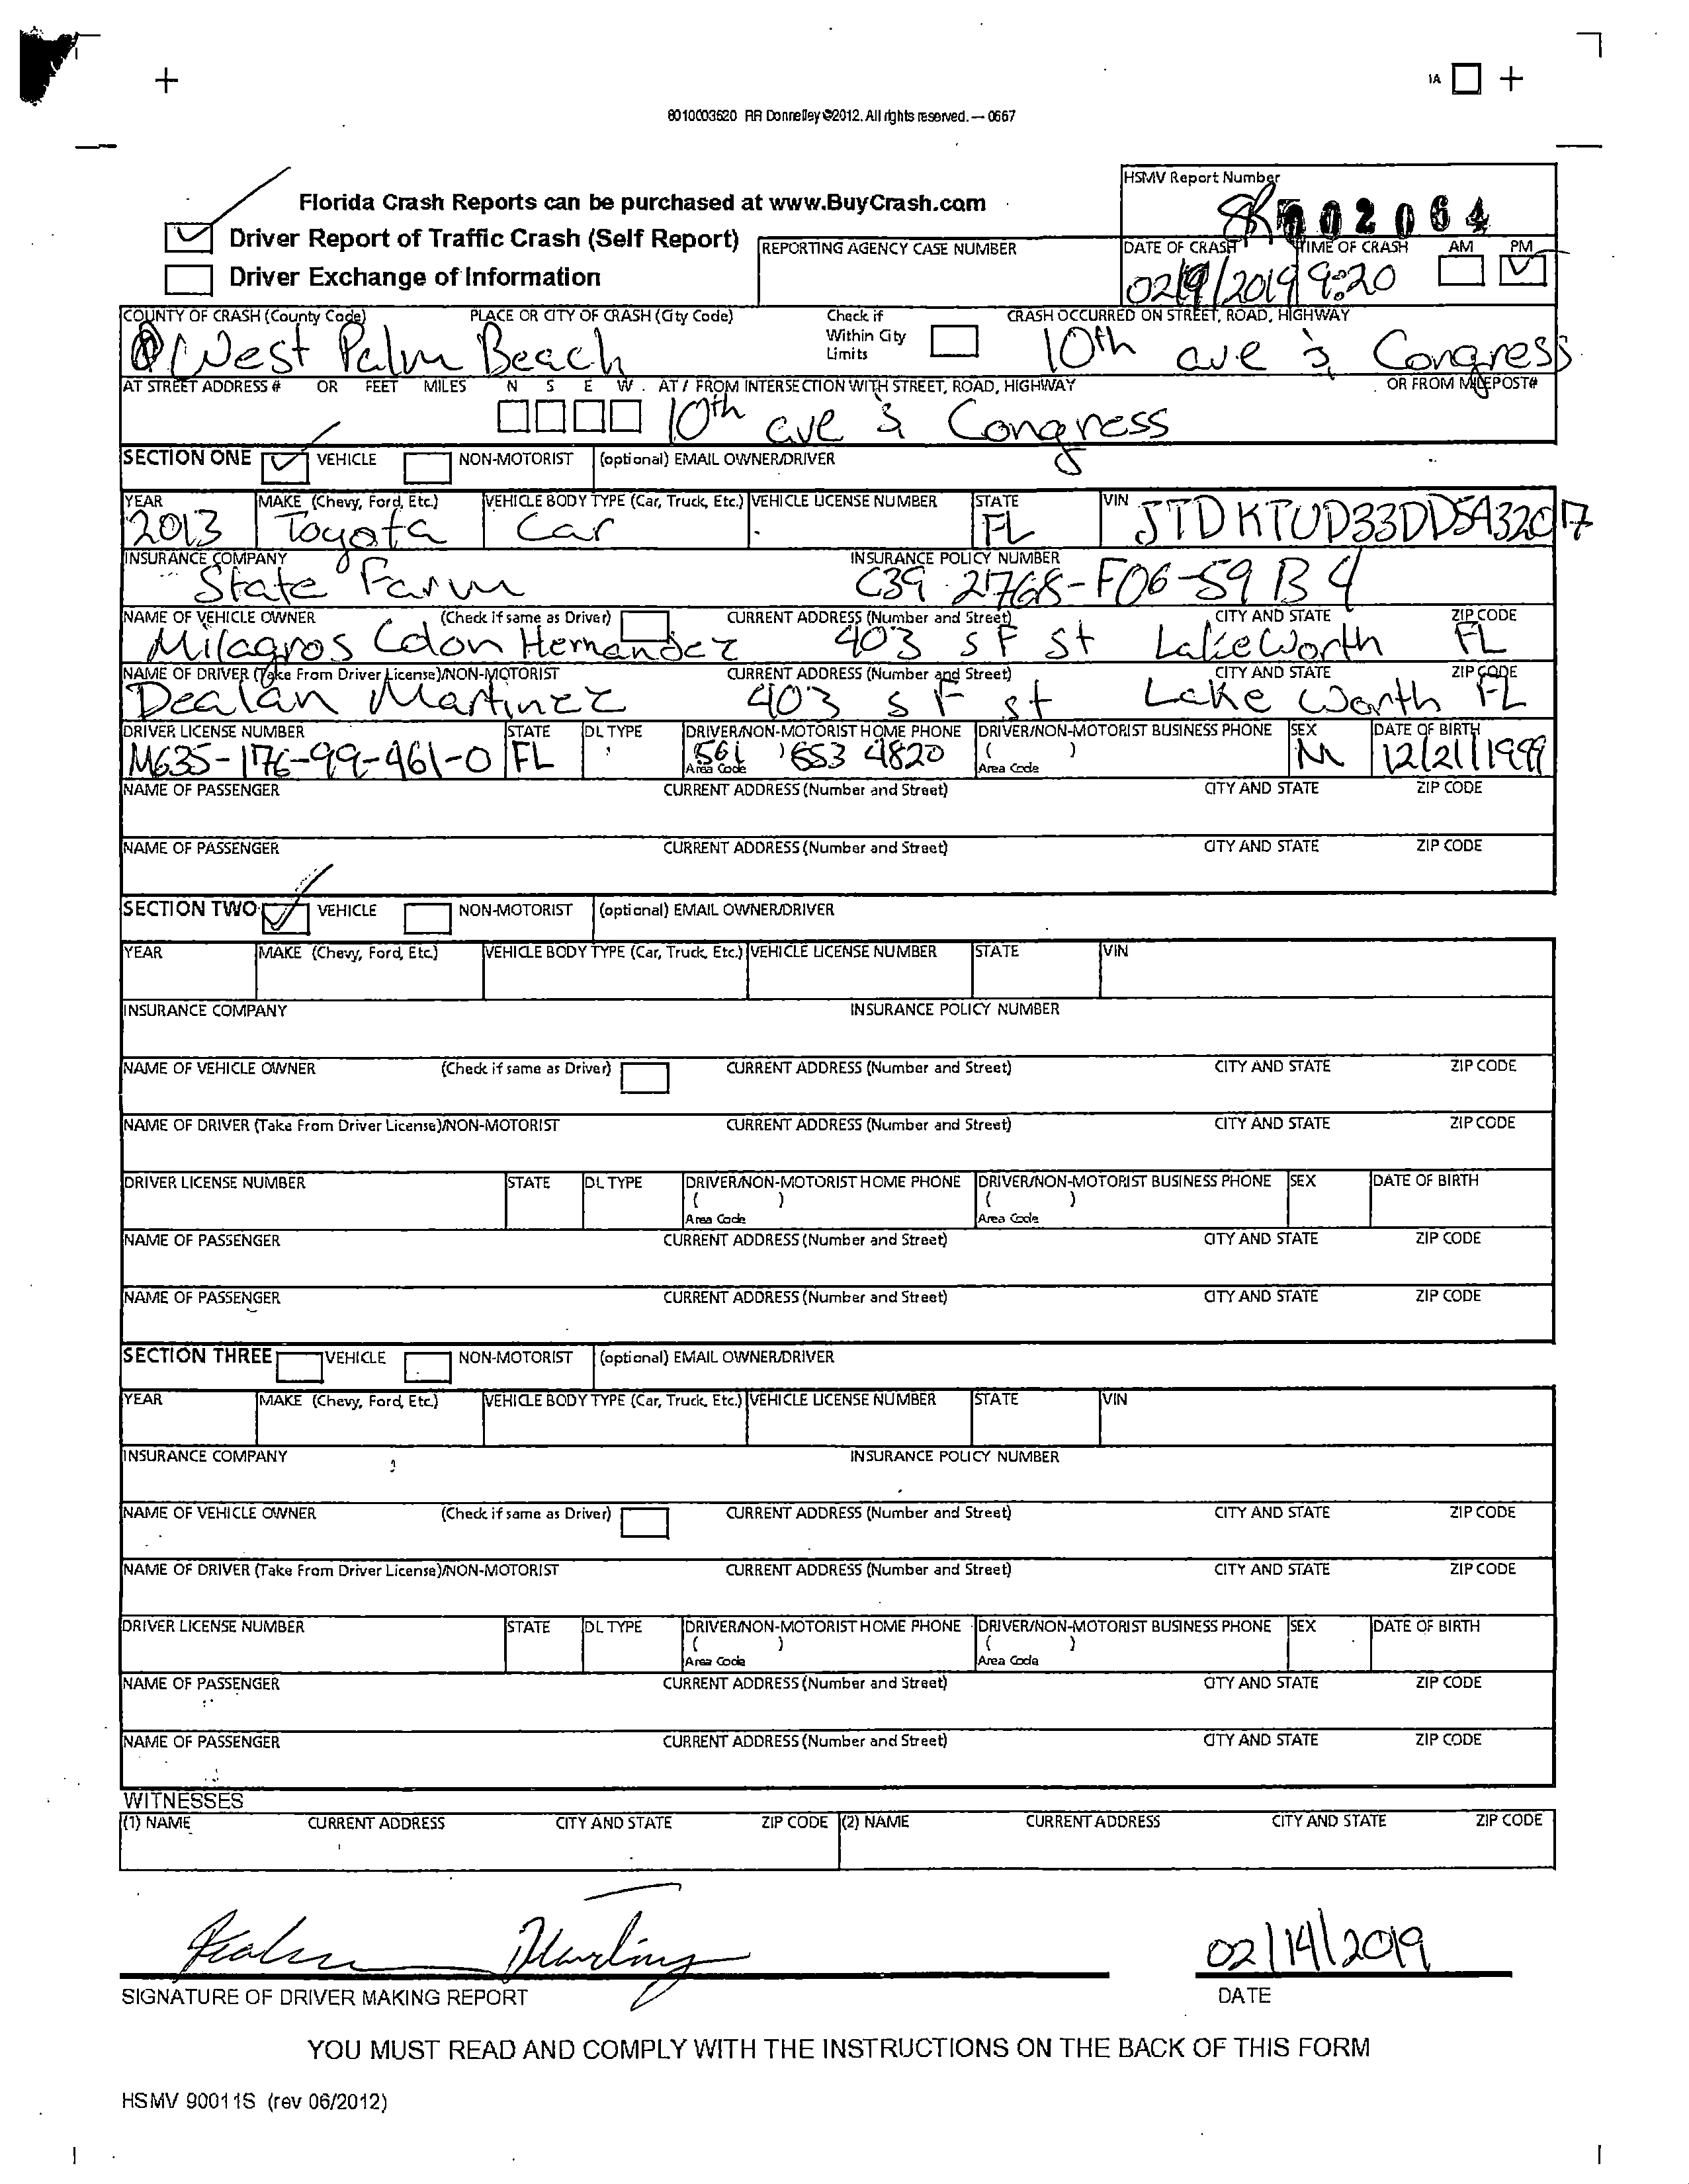 IA
8010003620 RR Donnelley ©2012. All rights reserved. — 0667
HSMV Report Number
Florida Crash Reports can be purchased at www.BuyCrash.com
02064
Driver Report of Traffic Crash (Self Report)
REPORTING AGENCY CASE NUMBER
DATE OF CRASH TIME OF CRASH AM PM
Driver Exchange of Information
/2019 9:20
COUNTY OF CRASH (County Code) PLACE OR CITY OF CRASH (City Code) Check if Within City Limits CRASH OCCURRED ON STREET, ROAD, HIGHWAY
West Palm Beach 10th ave & Congress
AT STREET ADDRESS # OR FEET MILES N S E W AT / FROM INTERSECTION WITH STREET, ROAD, HIGHWAY OR FROM MILEPOST#
10th ave & Congress
SECTION ONE VEHICLE NON-MOTORIST (optional) EMAIL OWNER/DRIVER
YEAR MAKE (Chevy, Ford, Etc.) VEHICLE BODY TYPE (Car, Truck, Etc.) VEHICLE LICENSE NUMBER STATE VIN
2013 Toyota Car FL JTDKTUD33DD5A32017
INSURANCE COMPANY INSURANCE POLICY NUMBER
State Farm C39 2768-F06-59 B4
NAME OF VEHICLE OWNER (Check if same as Driver) CURRENT ADDRESS (Number and Street) CITY AND STATE ZIP CODE
Milagros Colon Hernandez 403 S F St Lake Worth FL
NAME OF DRIVER (Take From Driver License)/NON-MOTORIST CURRENT ADDRESS (Number and Street) CITY AND STATE ZIP CODE
Dealan Martinez 403 S F st Lake Worth FL
DRIVER LICENSE NUMBER STATE DL TYPE DRIVER/NON-MOTORIST HOME PHONE DRIVER/NON-MOTORIST BUSINESS PHONE SEX DATE OF BIRTH
M635-176-99-461-0 FL 561 ) 653 4820 ( ) M 12/21/1999
Area Code Area Code
NAME OF PASSENGER CURRENT ADDRESS (Number and Street) CITY AND STATE ZIP CODE
NAME OF PASSENGER CURRENT ADDRESS (Number and Street) CITY AND STATE ZIP CODE
SECTION TWO VEHICLE NON-MOTORIST (optional) EMAIL OWNER/DRIVER
YEAR MAKE (Chevy, Ford, Etc.) VEHICLE BODY TYPE (Car, Truck, Etc.) VEHICLE LICENSE NUMBER STATE VIN
INSURANCE COMPANY INSURANCE POLICY NUMBER
NAME OF VEHICLE OWNER (Check if same as Driver) CURRENT ADDRESS (Number and Street) CITY AND STATE ZIP CODE
NAME OF DRIVER (Take From Driver License)/NON-MOTORIST CURRENT ADDRESS (Number and Street) CITY AND STATE ZIP CODE
DRIVER LICENSE NUMBER STATE DL TYPE DRIVER/NON-MOTORIST HOME PHONE DRIVER/NON-MOTORIST BUSINESS PHONE SEX DATE OF BIRTH
( ) ( )
Area Code Area Code
NAME OF PASSENGER CURRENT ADDRESS (Number and Street) CITY AND STATE ZIP CODE
NAME OF PASSENGER CURRENT ADDRESS (Number and Street) CITY AND STATE ZIP CODE
SECTION THREE VEHICLE NON-MOTORIST (optional) EMAIL OWNER/DRIVER
YEAR MAKE (Chevy, Ford, Etc.) VEHICLE BODY TYPE (Car, Truck, Etc.) VEHICLE LICENSE NUMBER STATE VIN
INSURANCE COMPANY INSURANCE POLICY NUMBER
NAME OF VEHICLE OWNER (Check if same as Driver) CURRENT ADDRESS (Number and Street) CITY AND STATE ZIP CODE
NAME OF DRIVER (Take From Driver License)/NON-MOTORIST CURRENT ADDRESS (Number and Street) CITY AND STATE ZIP CODE
DRIVER LICENSE NUMBER STATE DL TYPE DRIVER/NON-MOTORIST HOME PHONE DRIVER/NON-MOTORIST BUSINESS PHONE SEX DATE OF BIRTH
( ) ( )
Area Code Area Code
NAME OF PASSENGER CURRENT ADDRESS (Number and Street) CITY AND STATE ZIP CODE
NAME OF PASSENGER CURRENT ADDRESS (Number and Street) CITY AND STATE ZIP CODE
WITNESSES
(1) NAME CURRENT ADDRESS CITY AND STATE ZIP CODE (2) NAME CURRENT ADDRESS CITY AND STATE ZIP CODE
02/14/2019
SIGNATURE OF DRIVER MAKING REPORT DATE
YOU MUST READ AND COMPLY WITH THE INSTRUCTIONS ON THE BACK OF THIS FORM
HSMV 90011S (rev 06/2012)